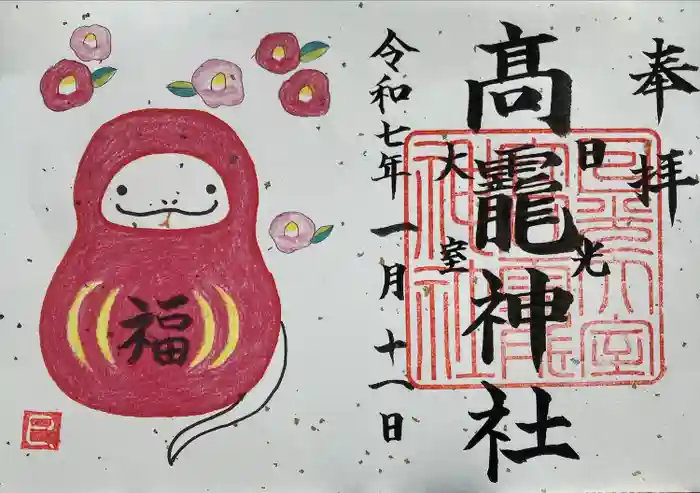 奉拝
日光
高龗神社
大室
令和七年一月十一日
福
巳